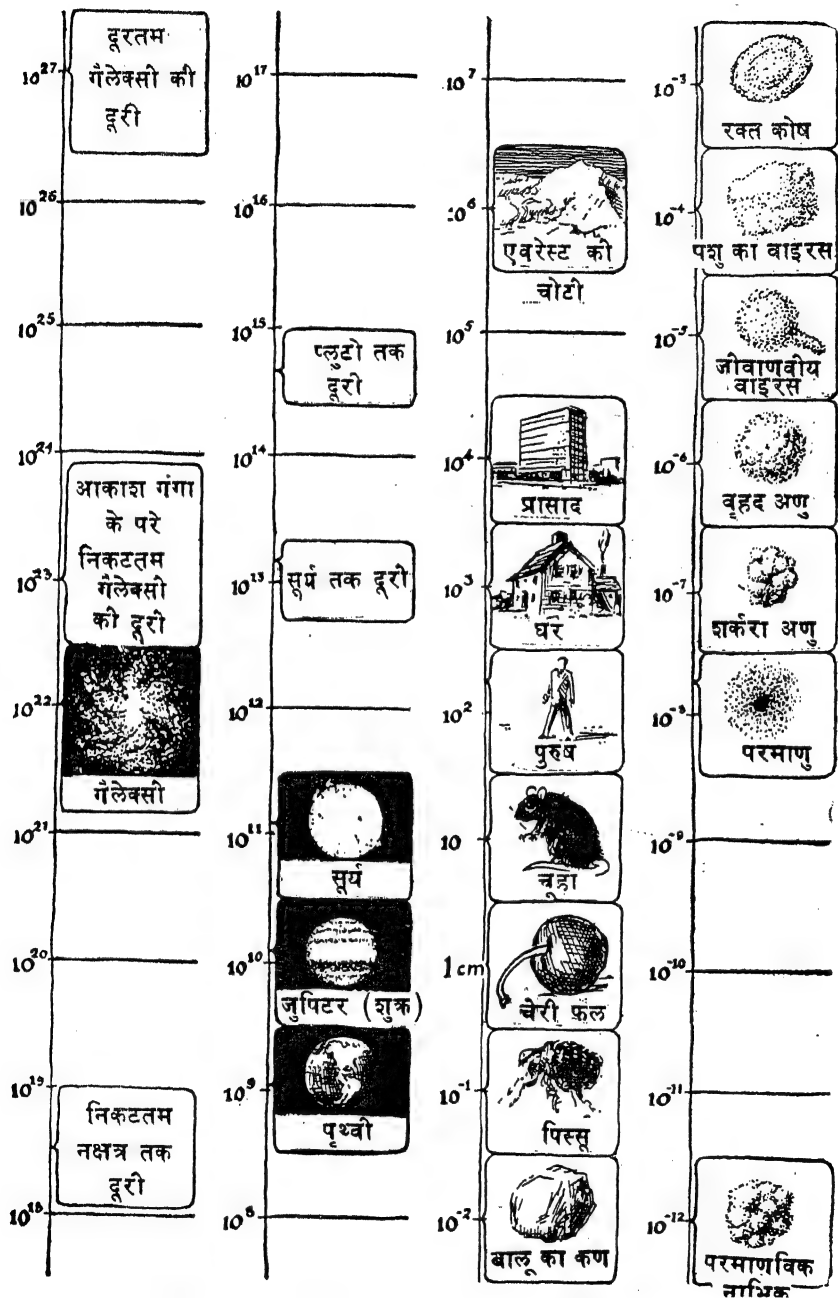 10²⁷
दूरतम
गैलेक्सी की
दूरी
10²⁶
10²⁵
10²¹
आकाश गंगा
के परे
निकटतम
गैलेक्सी
की दूरी
10²³
10²²
गैलेक्सी
10²¹
10²⁰
10¹⁹
निकटतम
नक्षत्र तक
दूरी
10¹⁸
10¹⁷
10¹⁶
10¹⁵
प्लुटो तक
दूरी
10¹⁴
10¹³
सूर्य तक दूरी
10¹²
10¹¹
सूर्य
10¹⁰
जुपिटर (शुक्र)
10⁹
पृथ्वी
10⁸
10⁷
10⁶
एवरेस्ट की
चोटी
10⁵
10⁴
प्रासाद
10³
घर
10²
पुरुष
10
चूहा
1 cm
चेरी फ़ल
10⁻¹
पिस्सू
10⁻²
बालू का कण
10⁻³
रक्त कोष
10⁻⁴
पशु का वाइरस
10⁻⁵
जीवाणवीय
वाइरस
10⁻⁶
वृहद अणु
10⁻⁷
शर्करा अणु
10⁻⁸
परमाणु
10⁻⁹
10⁻¹⁰
10⁻¹¹
10⁻¹²
परमाणविक
नाभिक